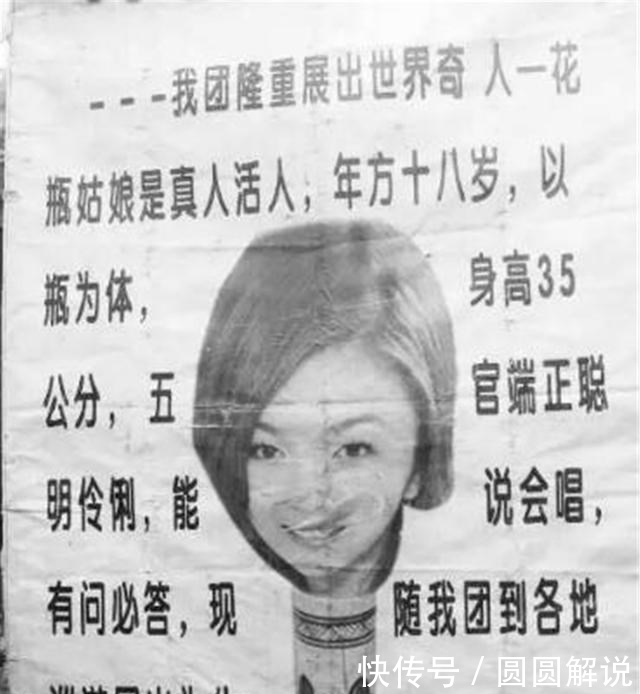 ---我团隆重展出世界奇人一花
瓶姑娘是真人活人,年方十八岁,以
瓶为体, 身高35
公分,五 官端正聪
明伶俐,能 说会唱,
有问必答,现 随我团到各地
快传号 / 圆圆解说